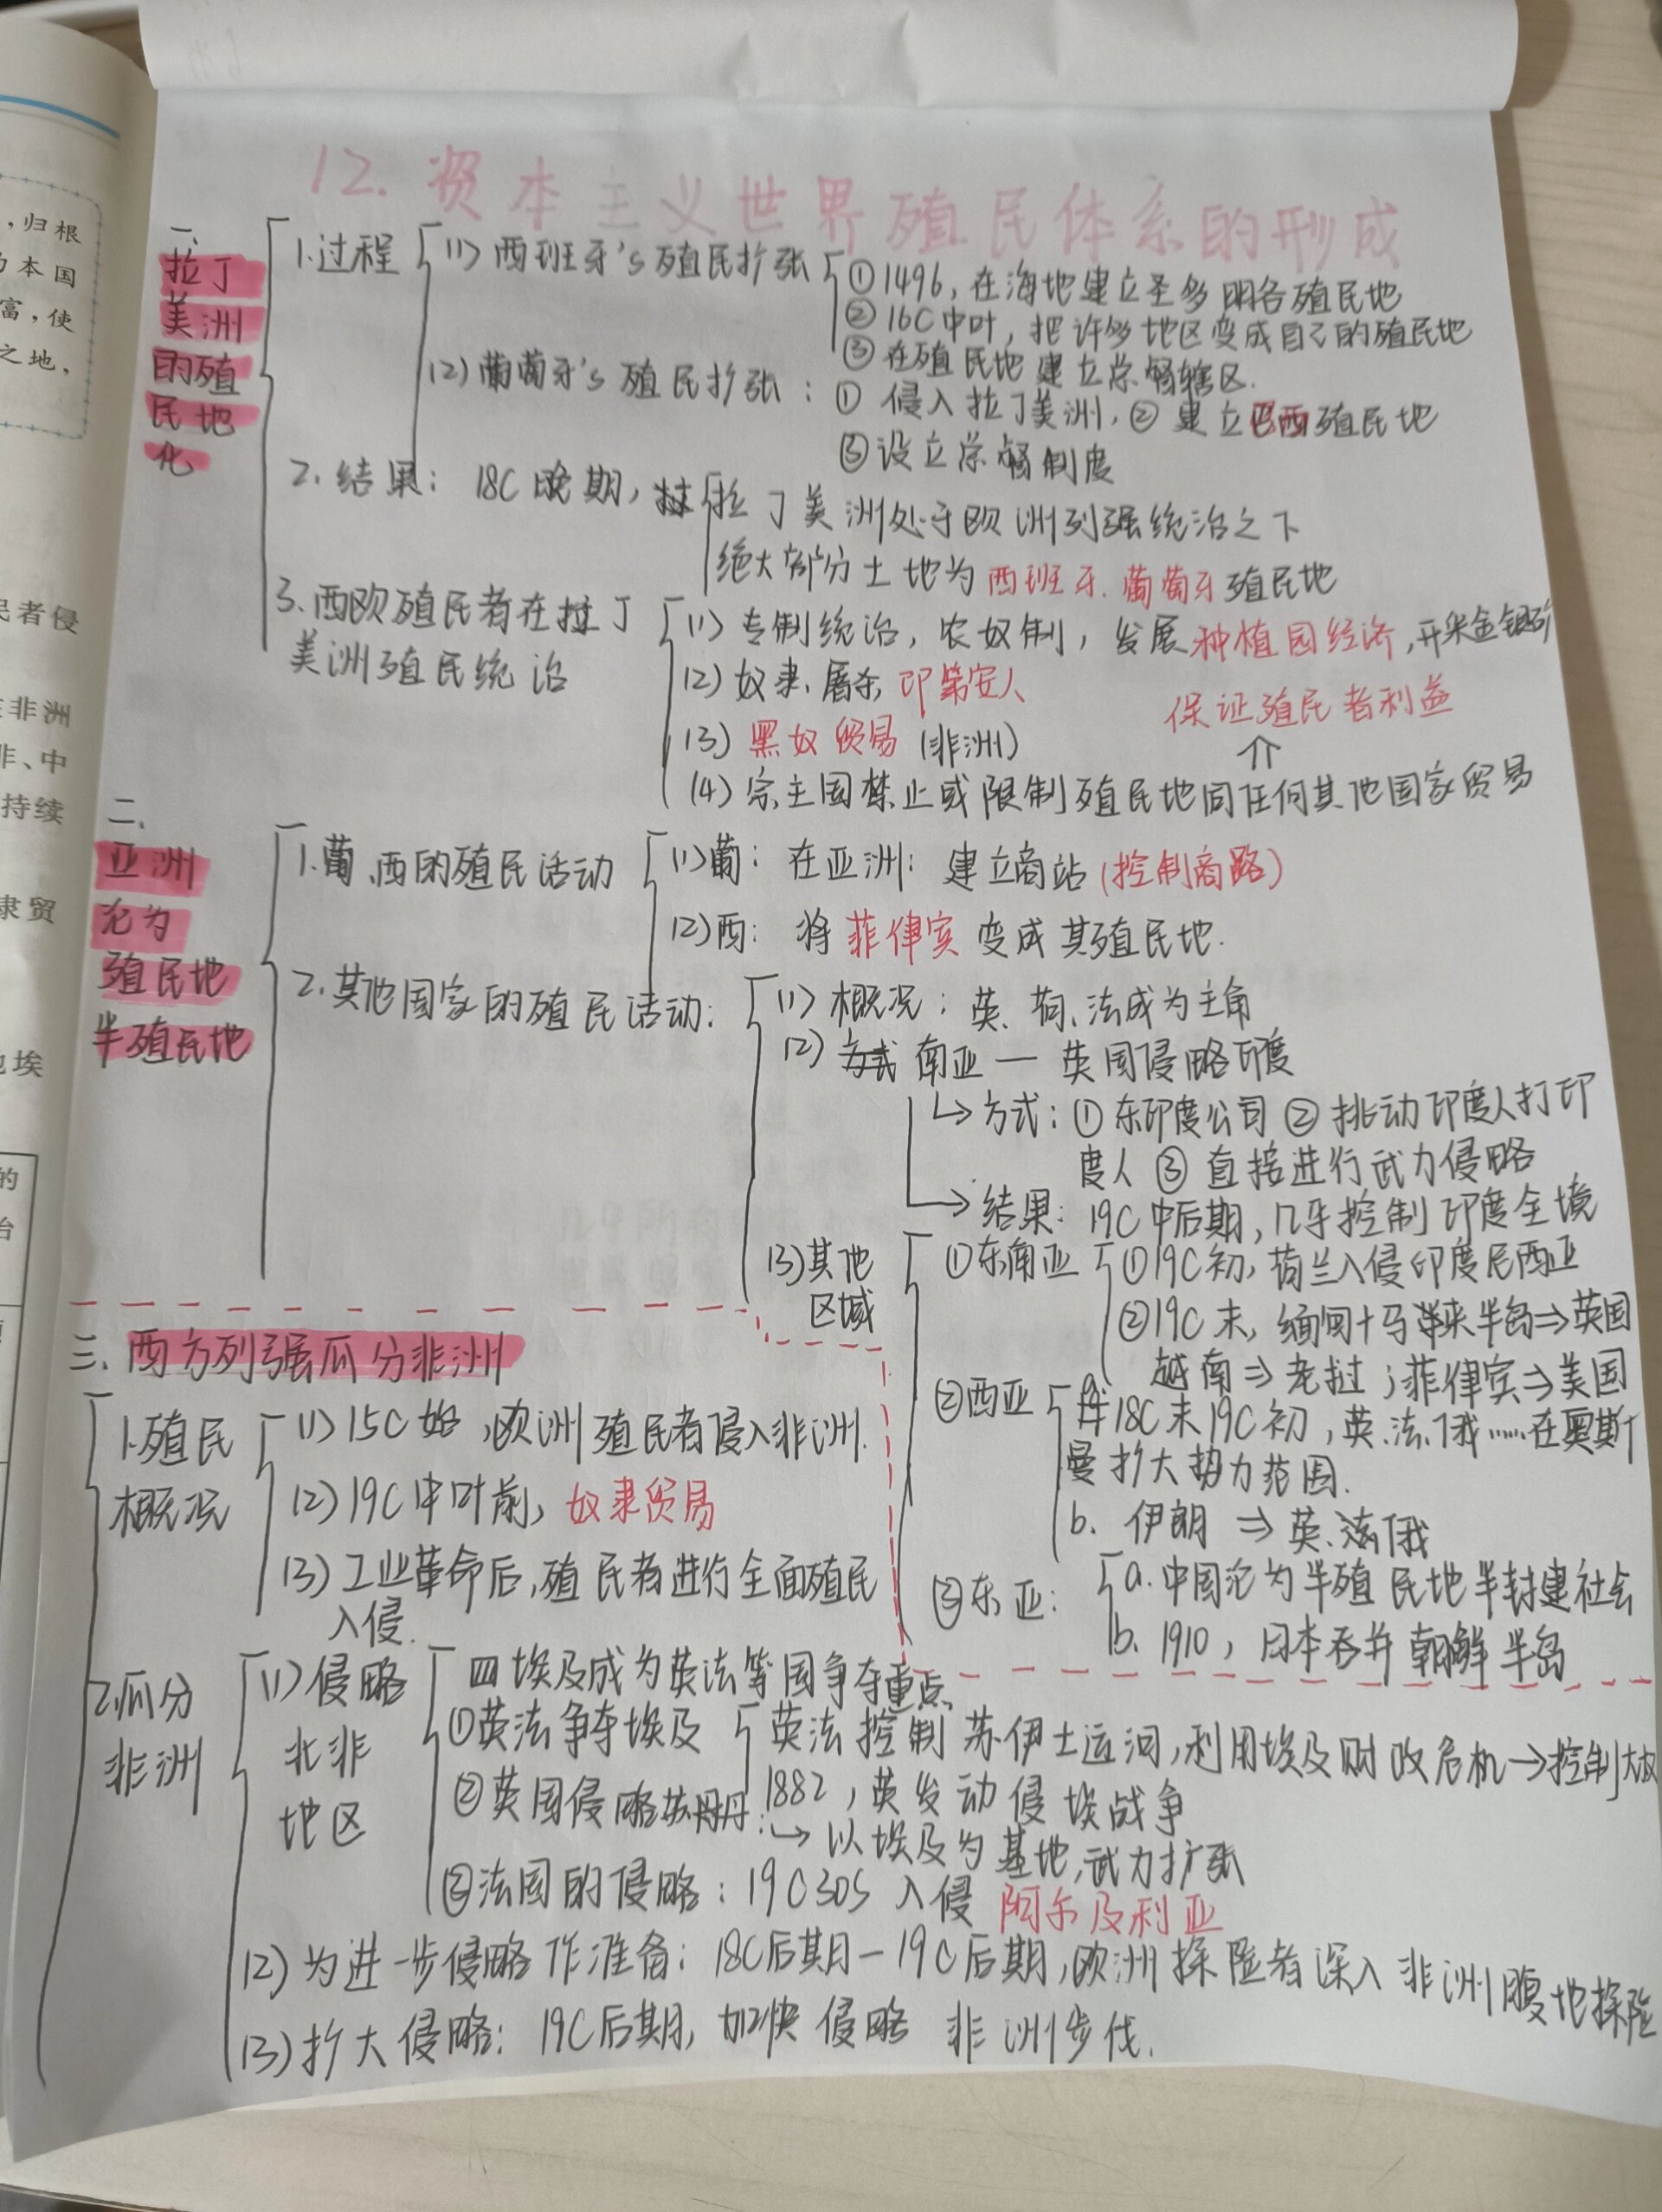 12. 资本主义世界殖民体系的形成
一、
拉丁
美洲
的殖
民地
化
1.过程
(1) 西班牙's 殖民扩张
① 1496, 在海地建立圣多明各殖民地
② 16C中叶, 把许多地区变成自己的殖民地
③ 在殖民地建立总督辖区.
(2) 葡萄牙's 殖民扩张：① 侵入拉丁美洲, ② 建立巴西殖民地
③ 设立总督制度
2. 结果：18C晚期, 拉丁美洲处于欧洲列强统治之下
绝大部分土地为西班牙.葡萄牙殖民地
3. 西欧殖民者在拉丁
美洲殖民统治
(1) 专制统治, 农奴制, 发展种植园经济, 开采金银矿
(2) 奴隶.屠杀, 印第安人
保证殖民者利益
(3) 黑奴贸易 (非洲)
(4) 宗主国禁止或限制殖民地同任何其他国家贸易
二、
亚洲
沦为
殖民地
半殖民地
1.葡.西的殖民活动
(1)葡：在亚洲：建立商站 (控制商路)
(2)西：将菲律宾变成其殖民地.
2.其他国家的殖民活动：
(1) 概况：英.荷.法成为主角
(2) 南亚 — 英国侵略印度
↳ 方式：① 东印度公司 ② 挑动印度人打印
度人 ③ 直接进行武力侵略
→ 结果：19C中后期, 几乎控制印度全境
(3)其他
区域
①东南亚
①19C初, 荷兰入侵印度尼西亚
②19C末, 缅甸+马来半岛⇒英国
越南⇒老挝；菲律宾⇒美国
②西亚
18C末19C初, 英.法.俄……在奥斯
曼扩大势力范围.
b. 伊朗 ⇒ 英.俄
③东亚：
a. 中国沦为半殖民地半封建社会
b. 1910, 日本吞并朝鲜半岛
三. 西方列强瓜分非洲
1.殖民
概况
(1) 15C始, 欧洲殖民者侵入非洲.
(2) 19C中叶前, 奴隶贸易
(3) 工业革命后, 殖民者进行全面殖民
入侵.
2.瓜分
非洲
(1) 侵略
北非
地区
埃及成为英法等国争夺重点
①英法争夺埃及
英法控制苏伊士运河, 利用埃及财政危机→控制
1882, 英发动侵埃战争
②英国侵略苏丹：
↳ 以埃及为基地, 武力扩张
③法国的侵略：19C30S 入侵 阿尔及利亚
(2) 为进一步侵略作准备：18C后期—19C后期, 欧洲探险者深入非洲腹地探险
(3) 扩大侵略：19C后期, 加快侵略非洲步伐.
，归根
本国
富，使
之地，
民者侵
非洲
非、中
持续
隶贸
地埃
的